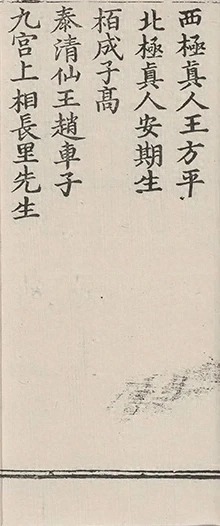 西極眞人王方平
北極眞人安期生
栢成子高
泰清仙王趙車子
九宫上相長里先生